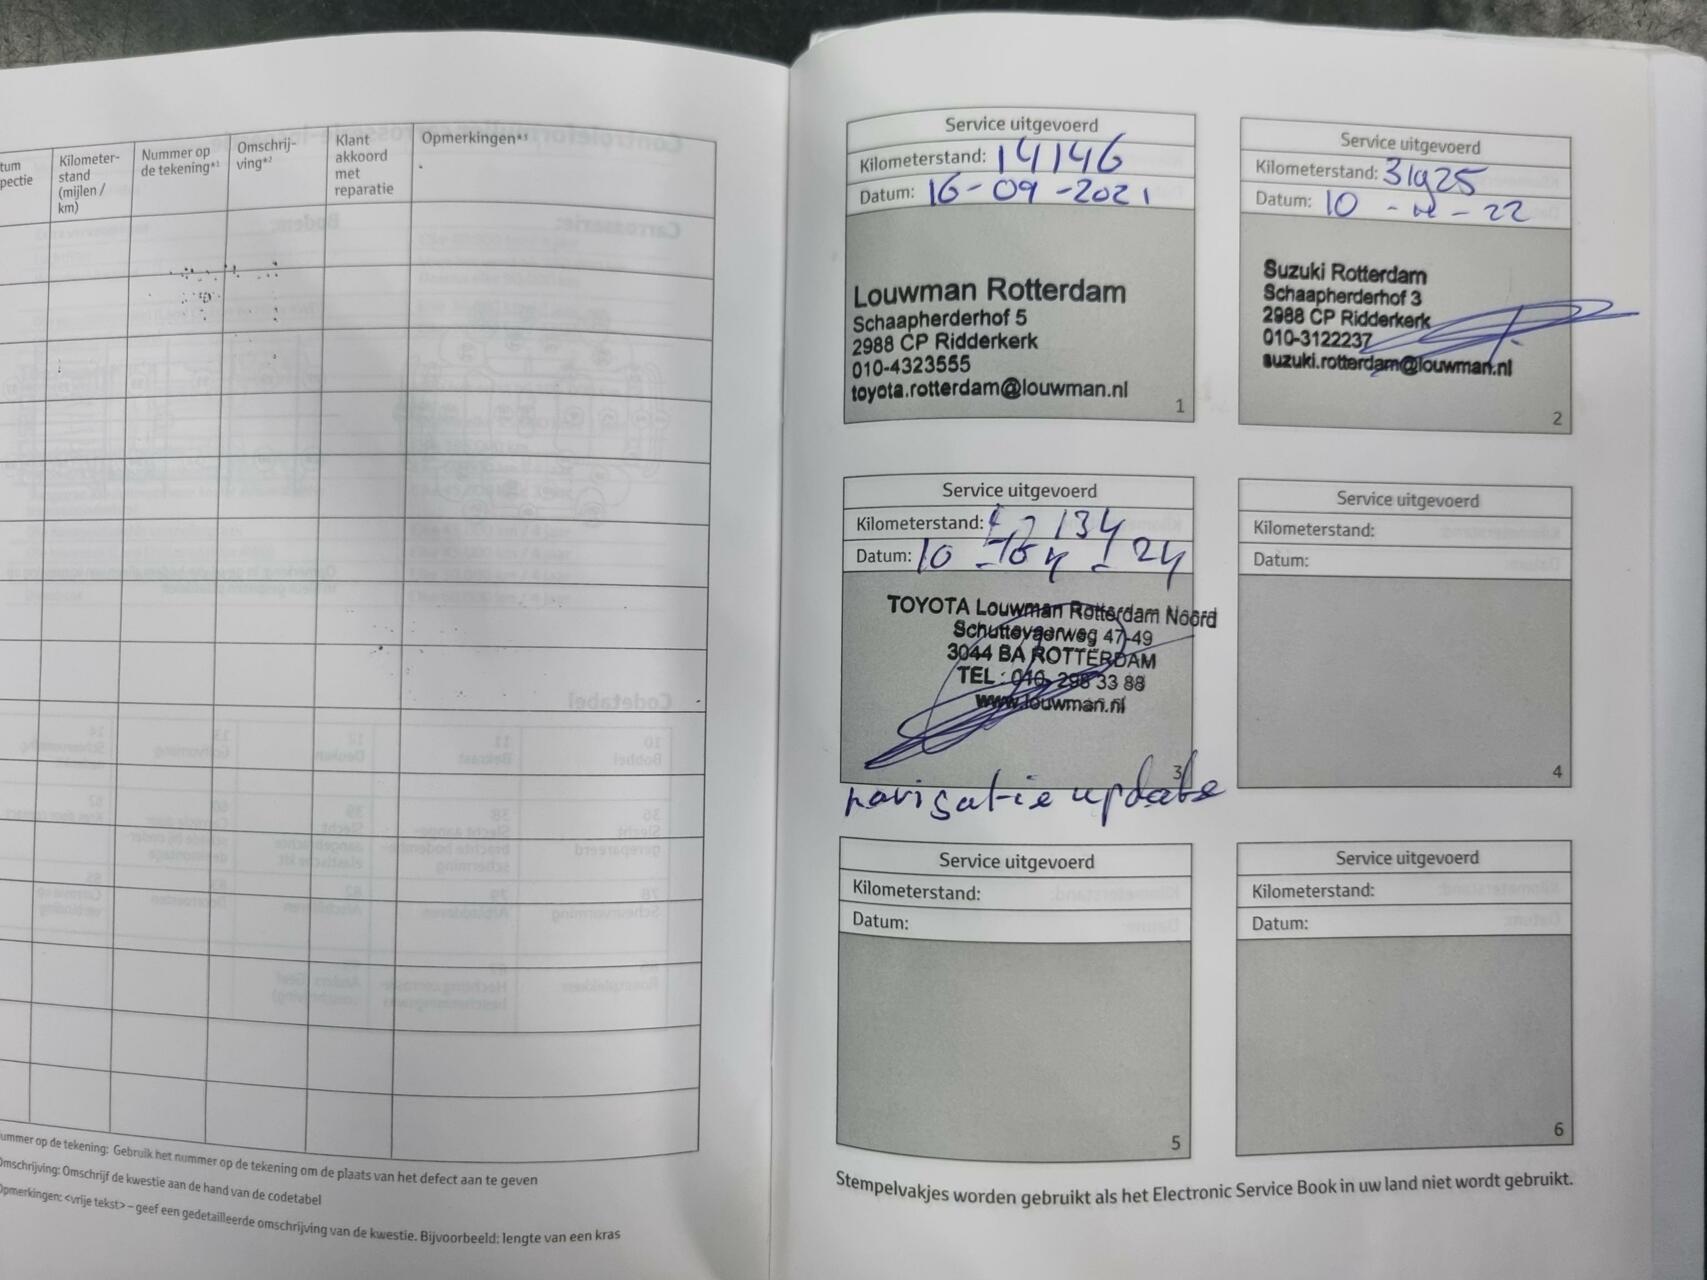 Kilometer-
stand
(mijlen /
km)
Nummer op
de tekening*¹
Omschrij-
ving*²
Klant
akkoord
met
reparatie
Opmerkingen*³
Nummer op de tekening: Gebruik het nummer op de tekening om de plaats van het defect aan te geven
Omschrijving: Omschrijf de kwestie aan de hand van de codetabel
Opmerkingen: <vrije tekst> – geef een gedetailleerde omschrijving van de kwestie. Bijvoorbeeld: lengte van een kras
Service uitgevoerd
Kilometerstand: 14146
Datum: 16-09-2021
Louwman Rotterdam
Schaapherderhof 5
2988 CP Ridderkerk
010-4323555
toyota.rotterdam@louwman.nl
1
Service uitgevoerd
Kilometerstand: 31925
Datum: 10 - - 22
Suzuki Rotterdam
Schaapherderhof 3
2988 CP Ridderkerk
010-3122237
suzuki.rotterdam@louwman.nl
2
Service uitgevoerd
Kilometerstand:
Datum: 10 24
TOYOTA Louwman Rotterdam Noord
47-49
3044 BA ROTTERDAM
TEL : 010- 298 33 88
www.louwman.nl
3
navigatie update
Service uitgevoerd
Kilometerstand:
Datum:
4
Service uitgevoerd
Kilometerstand:
Datum:
5
Service uitgevoerd
Kilometerstand:
Datum:
6
Stempelvakjes worden gebruikt als het Electronic Service Book in uw land niet wordt gebruikt.